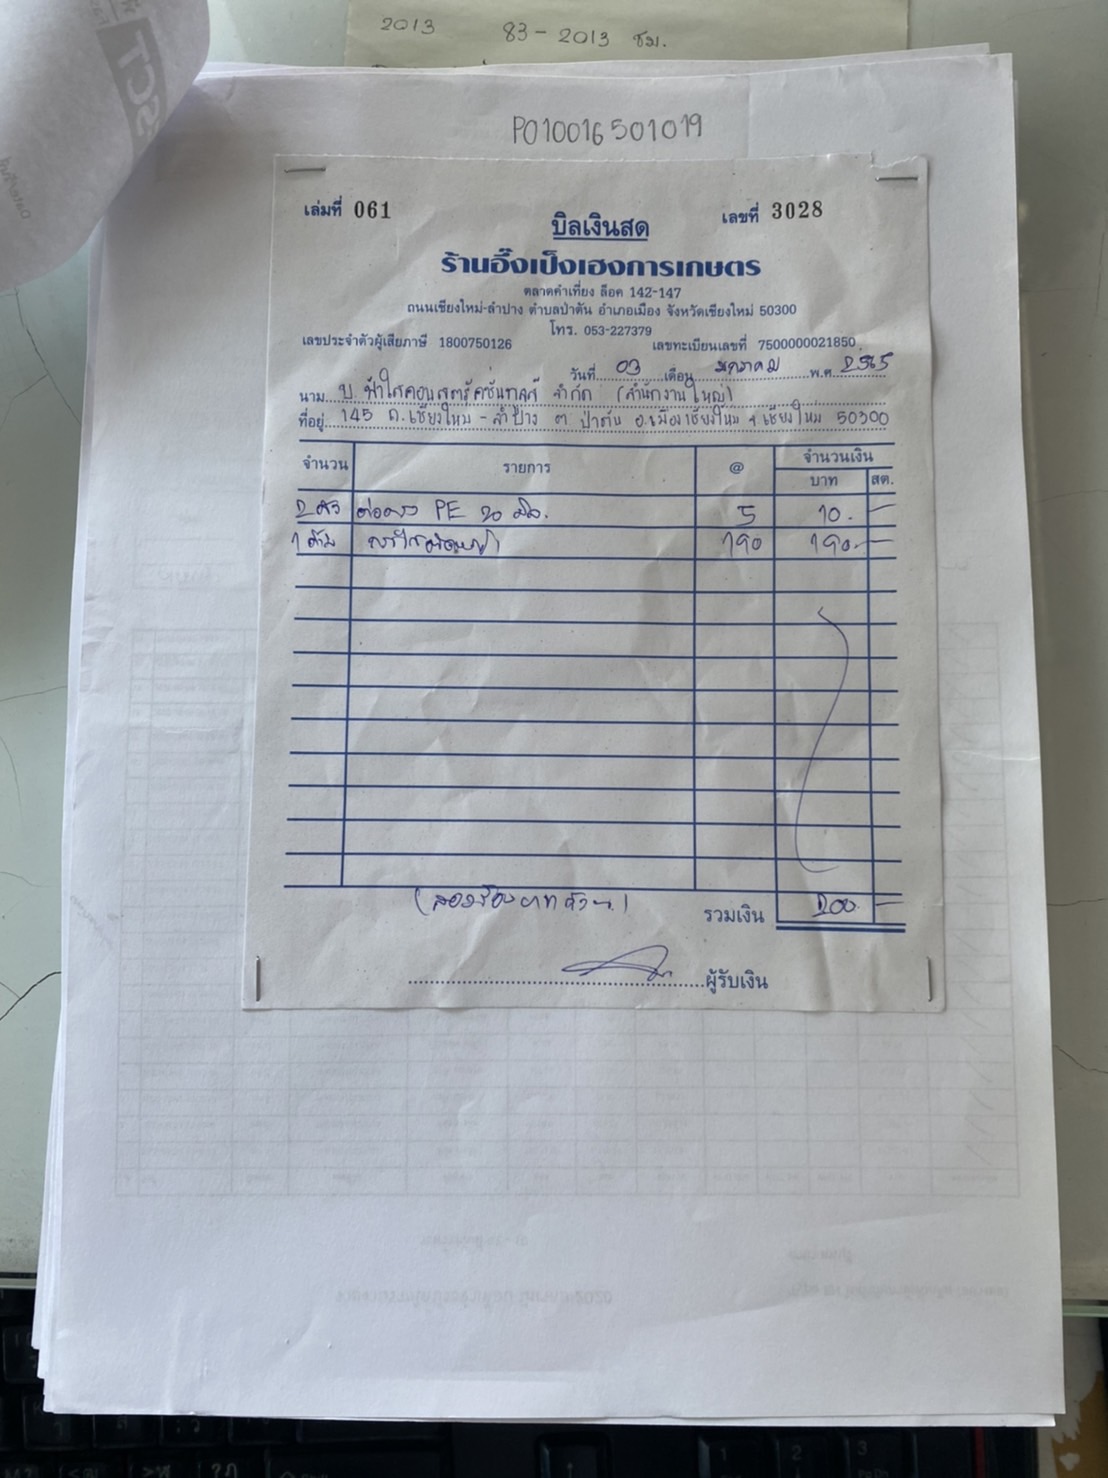 2013 83-2013 ชม.
PO10016501019
เล่มที่ 061
เลขที่ 3028
บิลเงินสด
ร้านอึ๊งเป็งเฮงการเกษตร
ตลาดคำเที่ยง ล็อค 142-147
ถนนเชียงใหม่-ลำปาง ตำบลป่าตัน อำเภอเมือง จังหวัดเชียงใหม่ 50300
โทร. 053-227379
เลขประจำตัวผู้เสียภาษี 1800750126 เลขทะเบียนเลขที่ 7500000021850
วันที่ 03 เดือน มกราคม พ.ศ. 2565
นาม บ. ฟ้าใสคอนสตรัคชั่นทูลส์ จำกัด (สำนักงานใหญ่)
ที่อยู่ 145 ถ.เชียงใหม่-ลำปาง ต. ป่าตัน อ.เมืองเชียงใหม่ จ.เชียงใหม่ 50300
จำนวน รายการ @ จำนวนเงิน
บาท สต.
2 ตัว ต่อตรง PE 20 มิล. 5 10.-
1 ด้าม 190 190.-
(สองร้อยบาทถ้วน) รวมเงิน 200.-
ผู้รับเงิน